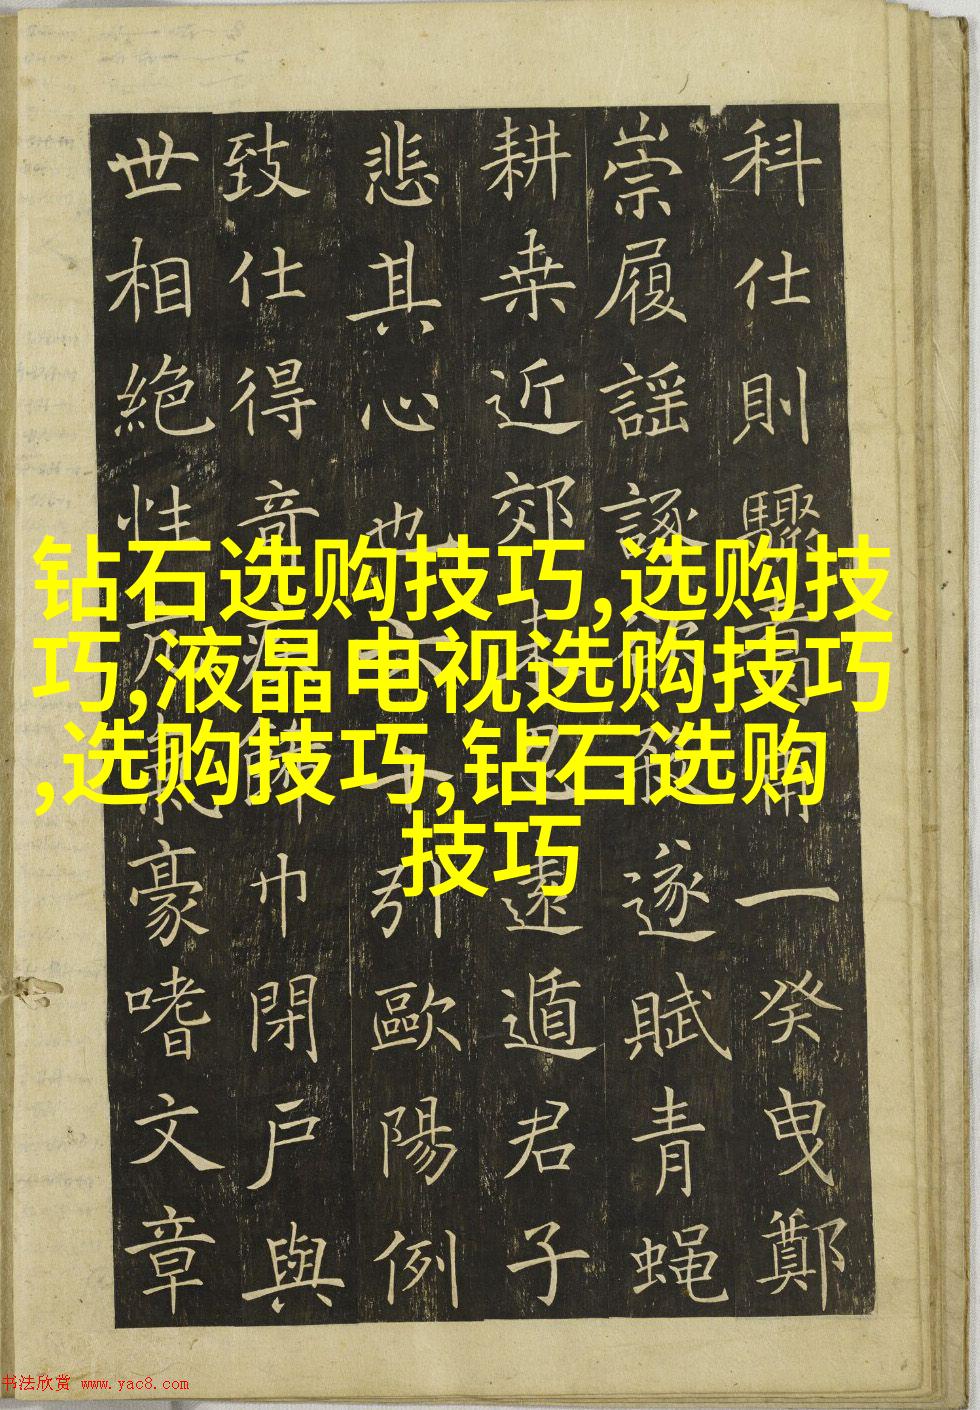 钻石选购技巧,选购技
巧,液晶电视选购技巧
,选购技巧,钻石选购
技巧
科仕則驟一癸曳鄭
崇履謡諑遂賦青蝿
耕桒近郊遠遁君子
悲其心也引歐陽例
致仕得巾閉戸與
世相絶性豪嗜文章
书法欣赏 www.yac8.com